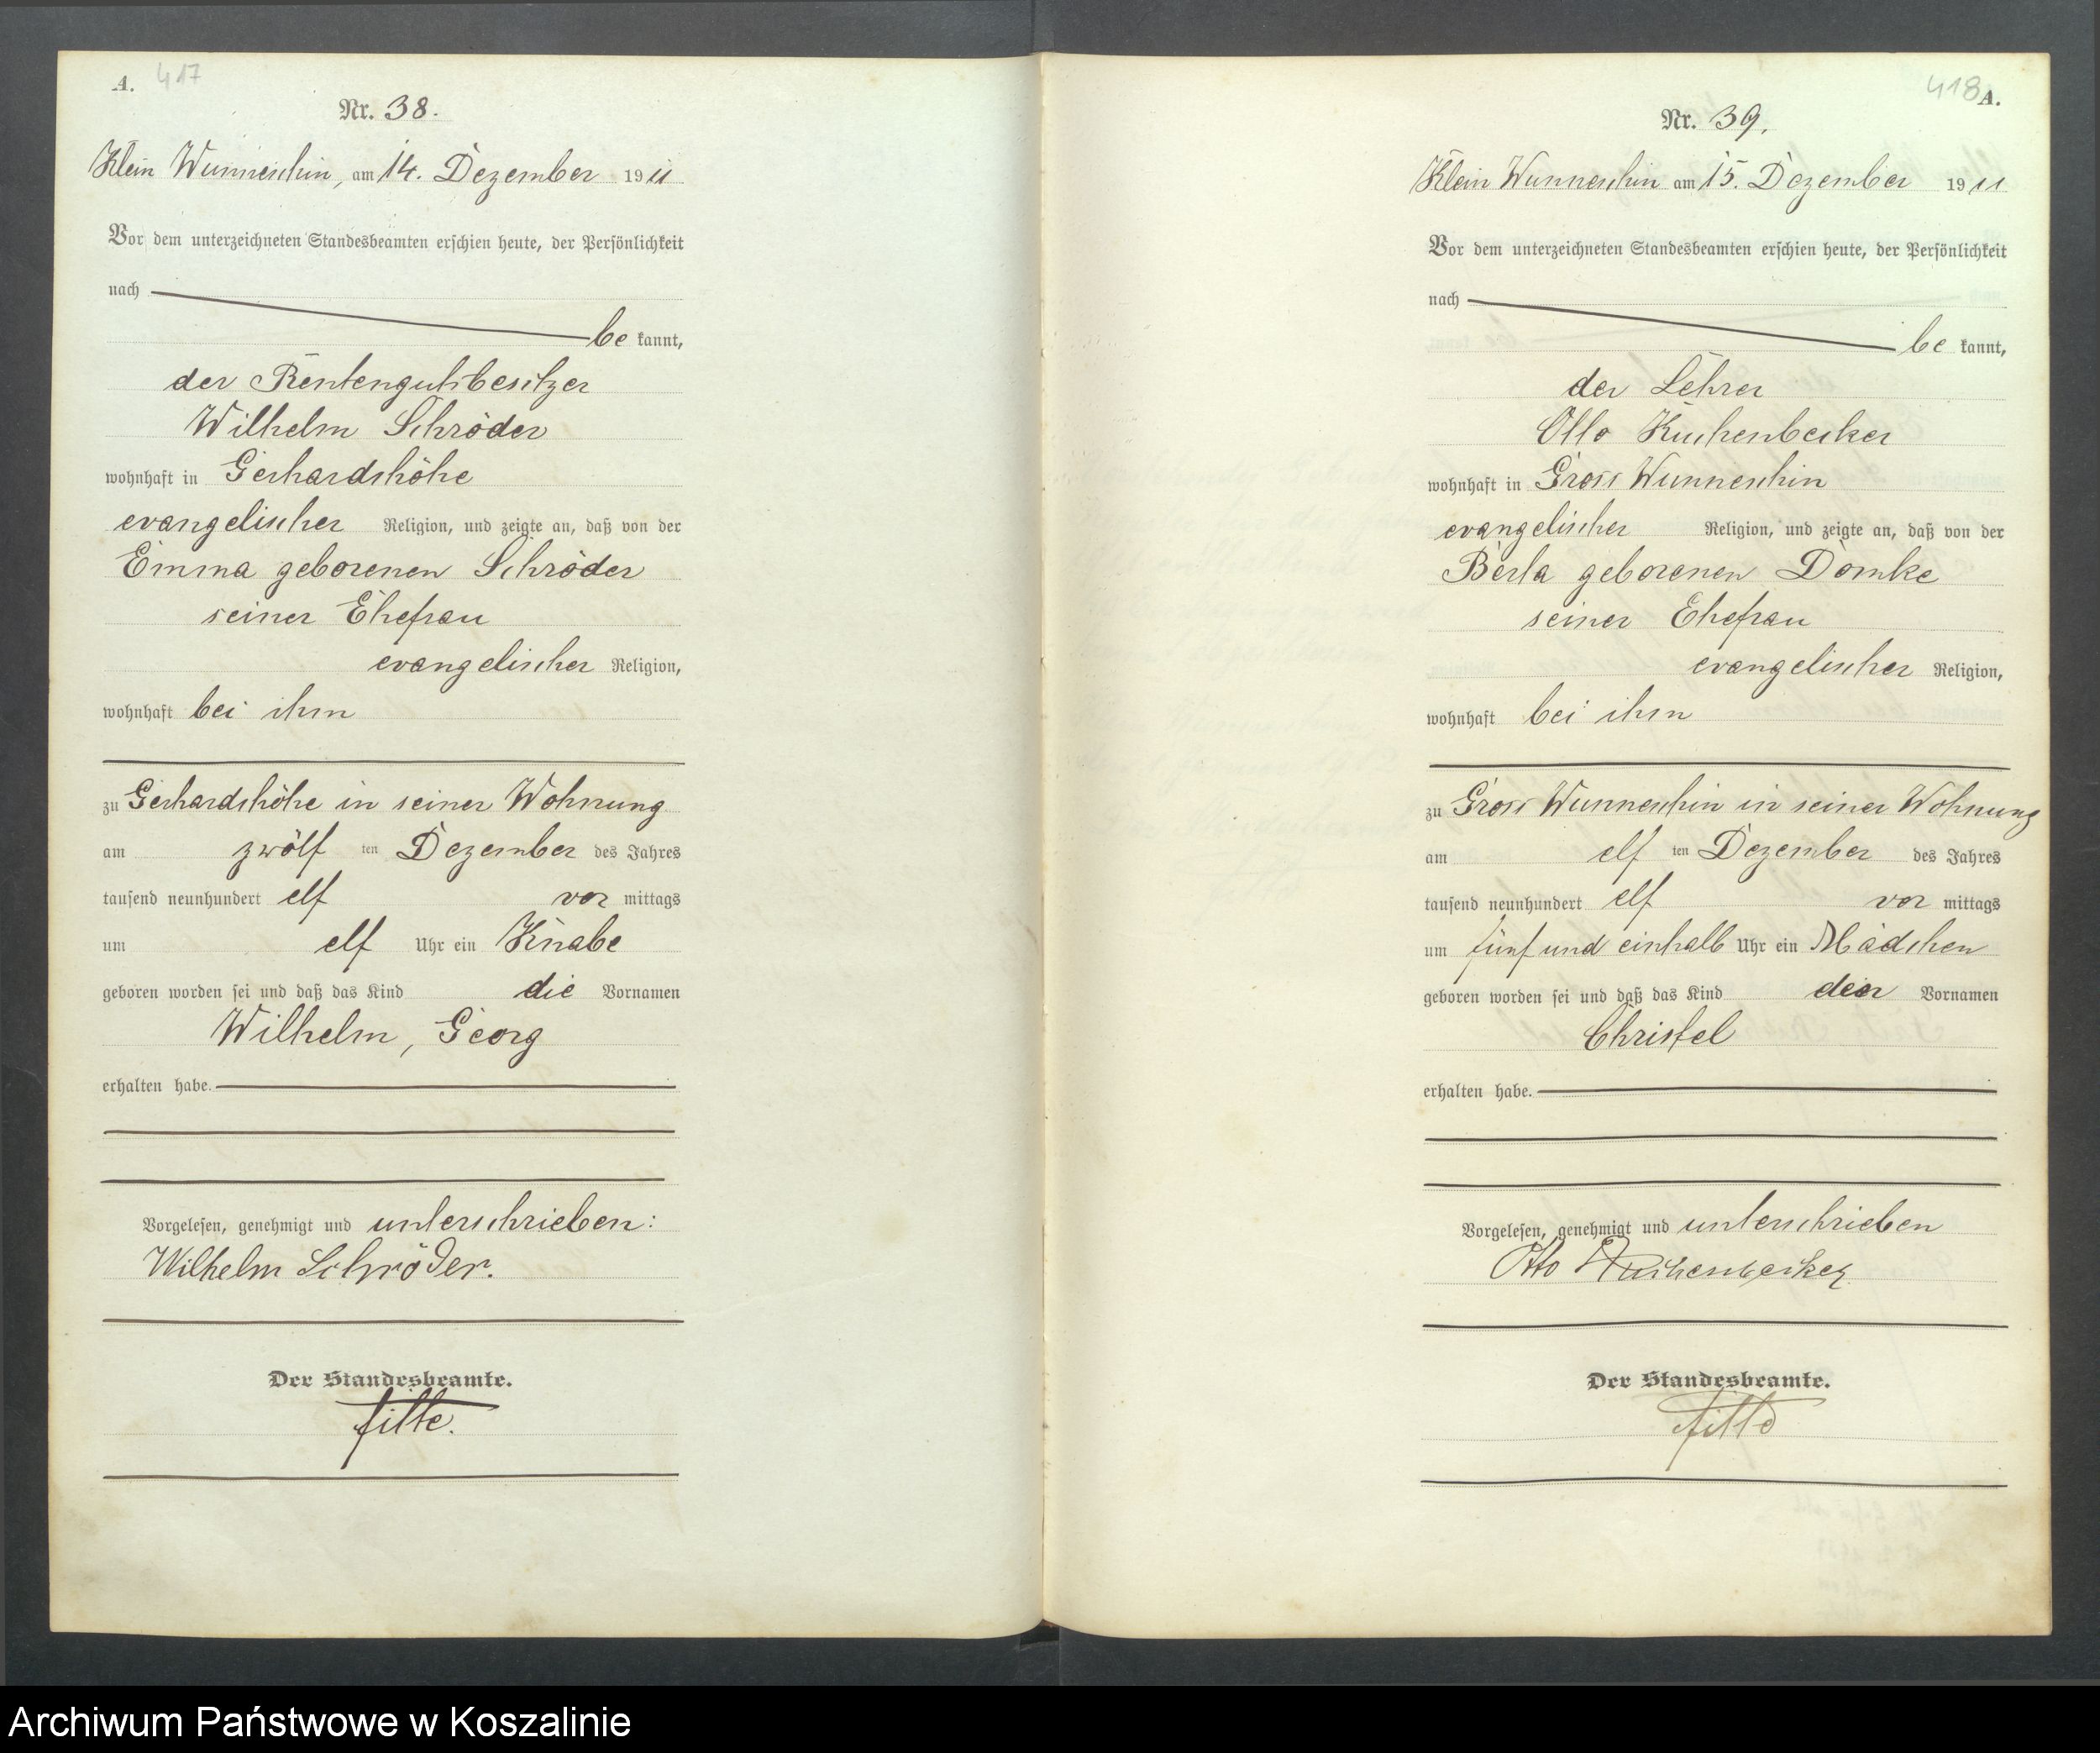 A. 417
Nr. 38.
Klein Wunneschin, am 14. Dezember 1911
Vor dem unterzeichneten Standesbeamten erschien heute, der Persönlichkeit
nach
be kannt,
der Rentengutsbesitzer
Wilhelm Schröder
wohnhaft in Gerhardshöhe
evangelischer Religion, und zeigte an, daß von der
Emma geborenen Schröder
seiner Ehefrau
evangelischer Religion,
wohnhaft bei ihm
zu Gerhardshöhe in seiner Wohnung
am zwölf ten Dezember des Jahres
tausend neunhundert elf vor mittags
um elf Uhr ein Knabe
geboren worden sei und daß das Kind die Vornamen
Wilhelm, Georg
erhalten habe.
Vorgelesen, genehmigt und unterschrieben:
Wilhelm Schröder.
Der Standesbeamte.
418 A.
Nr. 39.
Klein Wunneschin am 15. Dezember 1911
Vor dem unterzeichneten Standesbeamten erschien heute, der Persönlichkeit
nach
be kannt,
der Lehrer
Otto Kuchenbecker
wohnhaft in Gross Wunneschin
evangelischer Religion, und zeigte an, daß von der
Berta geborenen Domke
seiner Ehefrau
evangelischer Religion,
wohnhaft bei ihm
zu Gross Wunneschin in seiner Wohnung
am elf ten Dezember des Jahres
tausend neunhundert elf vor mittags
um fünf und einhalb Uhr ein Mädchen
geboren worden sei und daß das Kind den Vornamen
Christel
erhalten habe.
Vorgelesen, genehmigt und unterschrieben
Otto Kuchenbecker
Der Standesbeamte.
Archiwum Państwowe w Koszalinie